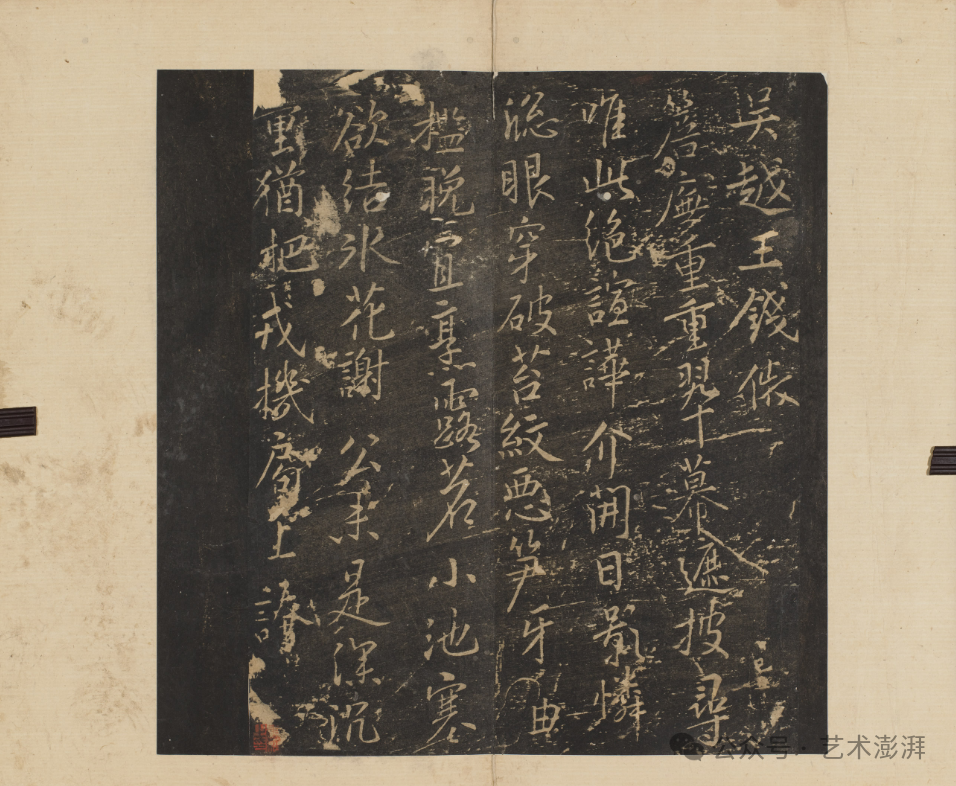 吳越王錢俶
簷廡重重翠幕遮披尋
唯此絶諠譁介開日影憐
牕眼穿破苔紋惡笋牙曲
檻晚宜烹露茗小池寒
欲結氷花謝公未是深沉
量猶把戎機局上誇
公众号·艺术澎湃